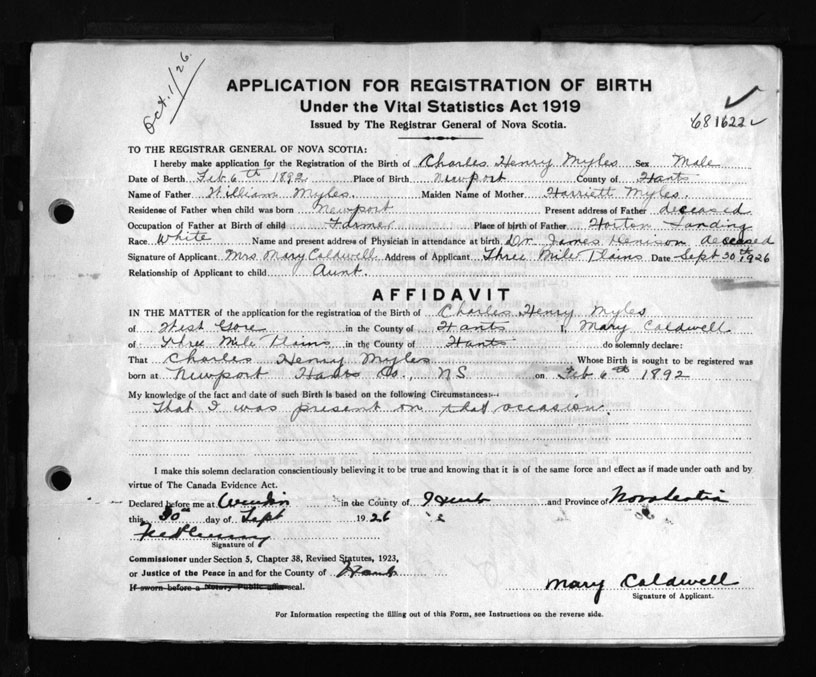 Oct. 1/26.
APPLICATION FOR REGISTRATION OF BIRTH
Under the Vital Statistics Act 1919
Issued by The Registrar General of Nova Scotia.
681622
TO THE REGISTRAR GENERAL OF NOVA SCOTIA:
I hereby make application for the Registration of the Birth of Charles Henry Myles Sex Male
Date of Birth Feb 6th 1892 Place of Birth Newport County of Hants
Name of Father William Myles. Maiden Name of Mother Harriett Myles.
Residense of Father when child was born Newport Present address of Father deceased
Occupation of Father at Birth of child Farmer Place of birth of Father Horton Landing
Race White Name and present address of Physician in attendance at birth Dr. James Denison deceased
Signature of Applicant Mrs Mary Caldwell Address of Applicant Three Mile Plains Date Sept 30th 1926
Relationship of Applicant to child Aunt.
AFFIDAVIT
IN THE MATTER of the application for the registration of the Birth of Charles Henry Myles
of West Gore in the County of Hants I, Mary Caldwell
of Three Mile Plains in the County of Hants do solemnly declare:
That Charles Henry Myles Whose Birth is sought to be registered was
born at Newport Hants Co., NS on Feb 6th 1892
My knowledge of the fact and date of such Birth is based on the following Circumstances:—
That I was present on that occasion.
I make this solemn declaration conscientiously believing it to be true and knowing that it is of the same force and effect as if made under oath and by
virtue of The Canada Evidence Act.
Declared before me at in the County of Hants and Province of Nova Scotia
this 30th day of Sept 1926
Signature of
Commissioner under Section 5, Chapter 38, Revised Statutes, 1923,
or Justice of the Peace in and for the County of Hants
If sworn before a Notary Public affix seal.
Mary Caldwell
Signature of Applicant.
For Information respecting the filling out of this Form, see Instructions on the reverse side.